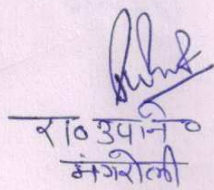 रा० उपानि०
मंगरोली